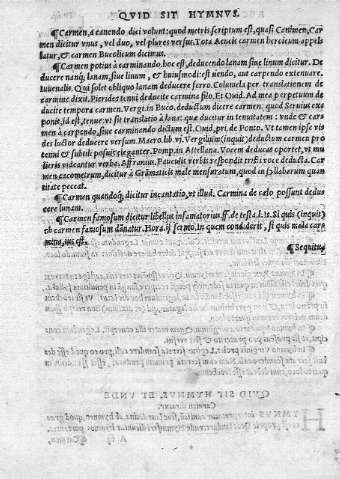 QVID SIT HYMNVS.
¶Carmen, a canendo dici volunt: quod metris scriptum est, quasi Canimen, Car
men dicitur vnus, vel duo, vel plures versus: Tota Aeneis carmen heroicum appel
latur, & carmen Bucolicum dicimus.
¶Carmen potius à carminando. hoc est, deducendo lanam siue linum dicitur. De
ducere nanq; lanam, siue linum, & huiusmodi: est filendo, aut carpendo extenuare.
Iuuenalis. Qui solet obliquo lanam deducere ferro. Columela per translationem de
carmine dixit. Pierides tenui deducite carmina filo. Et Ouid. Ad mea perpetuum de
ducite tempora carmen. Verg. in Buco. deductum dicere carmen: quod Seruius ex
ponit, id est, tenue: vt sit translatio à lana: quae ducitur in tenuitatem: vnde & car
men à carpendo, siue carminando dictum est. Ouid. pri. de Ponto. Vt tamen ipse vi
des luctor deducere versum. Macro. lib. vi. Vergilium (inquit) deductum carmen pro
tenui & subtili posuisse eleganter. Pomp. in Attellana. Vocem deducat oportet, vt mu
lieris videantur verba. Afranius. Pauculis verbis respondit tristi voce deducta. Car
men exametrum, dicitur à Grāmaticis male mensuratum, quod in syllabarum quan
titate peccat.
¶Carmen quandoq; dicitur incantatio, vt illud. Carmina de cælo possunt deduce
cere lunam.
¶Carmen famosum dicitur libellus infamatorius ff. de testa. l. is. Si quis (inquit)
ob carmen famosum dānatur. Hora. ij. sermo. In quem condiderit, si quis mala car
mina, ius est.
¶Sequitur